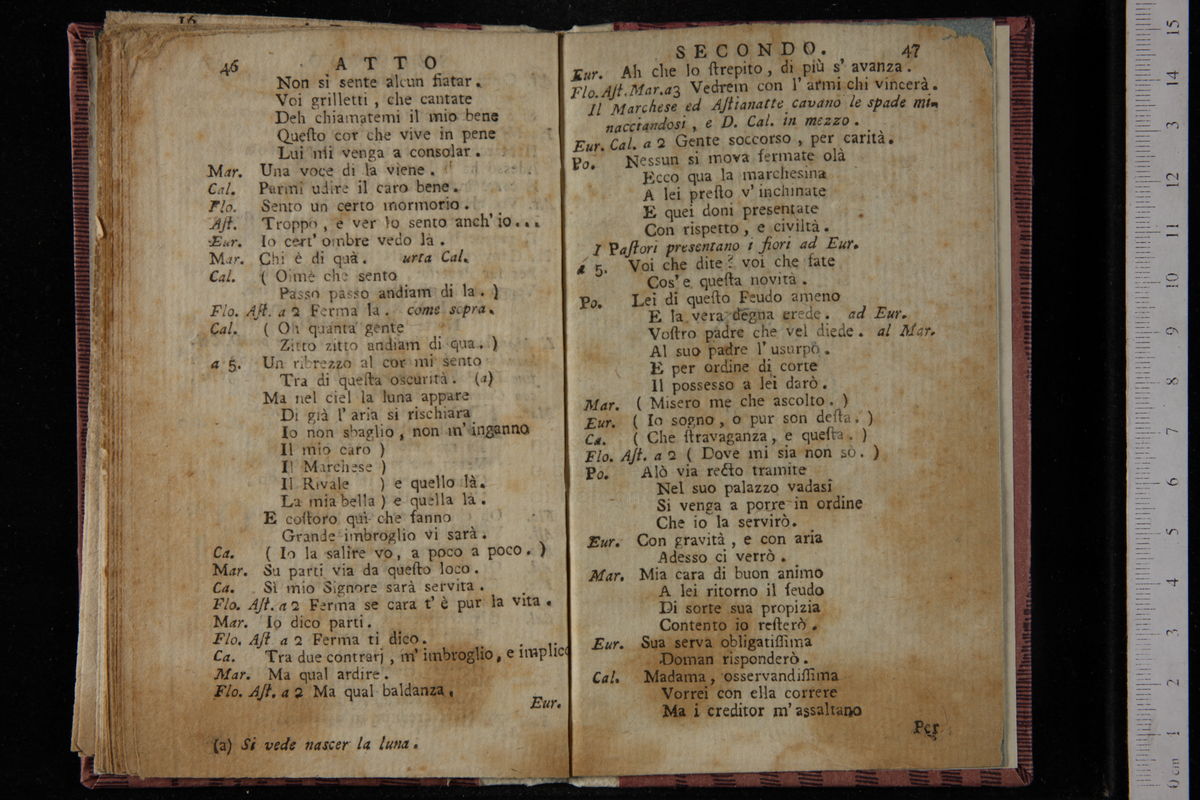 16
46 ATTO
Non si sente alcun fiatar.
Voi grilletti, che cantate
Deh chiamatemi il mio bene
Queſto cor che vive in pene
Lui mi venga a consolar.
Mar. Una voce di la viene.
Cal. Parmi udire il caro bene.
Flo. Sento un certo mormorio.
Aſt. Troppo, e ver lo sento anch' io...
Eur. Io cert' ombre vedo la.
Mar. Chi è di quà. urta Cal.
Cal. ( Oimè che sento
Passo passo andiam di la. )
Flo. Aſt. a 2 Ferma la. come sopra.
Cal. ( Oh quanta gente
Zitto zitto andiam di qua. )
a 5. Un ribrezzo al cor mi sento
Tra di queſta oscurità. (a)
Ma nel ciel la luna appare
Di già l' aria si rischiara
Io non sbaglio, non m' inganno
Il mio caro )
Il Marchese )
Il Rivale ) e quello là.
La mia bella ) e quella là.
E coſtoro qui che fanno
Grande imbroglio vi sarà.
Ca. ( Io la salire vo, a poco a poco. )
Mar. Su parti via da queſto loco.
Ca. Sì mio Signore sarà servita.
Flo. Aſt. a 2 Ferma se cara t' è pur la vita.
Mar. Io dico parti.
Flo. Aſt a 2 Ferma ti dico.
Ca. Tra due contrarj, m' imbroglio, e implico
Mar. Ma qual ardire.
Flo. Aſt. a 2 Ma qual baldanza.
Eur.
(a) Si vede nascer la luna.
SECONDO. 47
Eur. Ah che lo ſtrepito, di più s' avanza.
Flo. Aſt. Mar. a 3 Vedrem con l' armi chi vincerà.
Il Marchese ed Aſtianatte cavano le spade mi-
nacciandosi, e D. Cal. in mezzo.
Eur. Cal. a 2 Gente soccorso, per carità.
Po. Nessun si mova fermate olà
Ecco qua la marchesina
A lei preſto v' inchinate
E quei doni presentate
Con rispetto, e civiltà.
I Paſtori presentano i fiori ad Eur.
a 5. Voi che dite? voi che fate
Cos' e queſta novità.
Po. Lei di queſto Feudo ameno
E la vera degna erede. ad Eur.
Voſtro padre che vel diede. al Mar.
Al suo padre l' usurpò.
E per ordine di corte
Il possesso a lei darò.
Mar. ( Misero me che ascolto. )
Eur. ( Io sogno, o pur son deſta. )
Ca. ( Che ſtravaganza, e queſta. )
Flo. Aſt. a 2 ( Dove mi sia non sò. )
Po. Alò via recto tramite
Nel suo palazzo vadasi
Si venga a porre in ordine
Che io la servirò.
Eur. Con gravità, e con aria
Adesso ci verrò.
Mar. Mia cara di buon animo
A lei ritorno il feudo
Di sorte sua propizia
Contento io reſterò.
Eur. Sua serva obligatiſſima
Doman risponderò.
Cal. Madama, osservandiſſima
Vorrei con ella correre
Ma i creditor m' assaltano
Per
0 cm 1 2 3 4 5 6 7 8 9 10 11 12 3 14 15